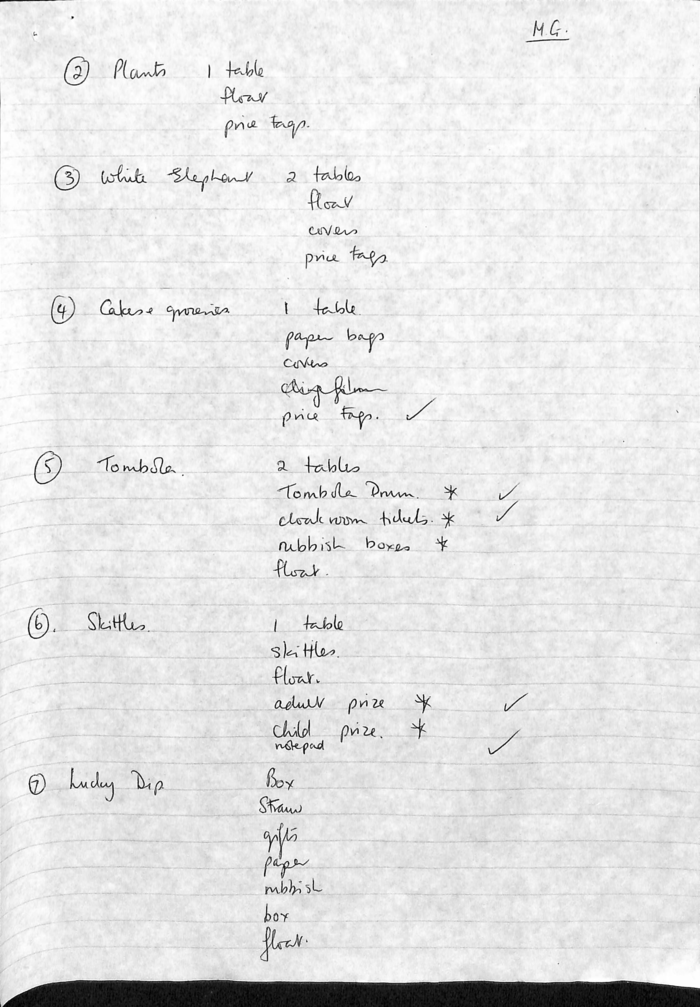 M.G.
② Plants 1 table
float
price tags.
③ White Elephant 2 tables
float
covers
price tags
④ Cakes + groceries 1 table
paper bags
covers
cling film
price tags. ✓
⑤ Tombola. 2 tables
Tombola Drum. * ✓
cloakroom tickets. * ✓
rubbish boxes *
float.
⑥. Skittles. 1 table
skittles.
float.
adult prize * ✓
child prize. *
notepad ✓
⑦ Lucky Dip Box
Straw
gifts
paper
rubbish
box
float.